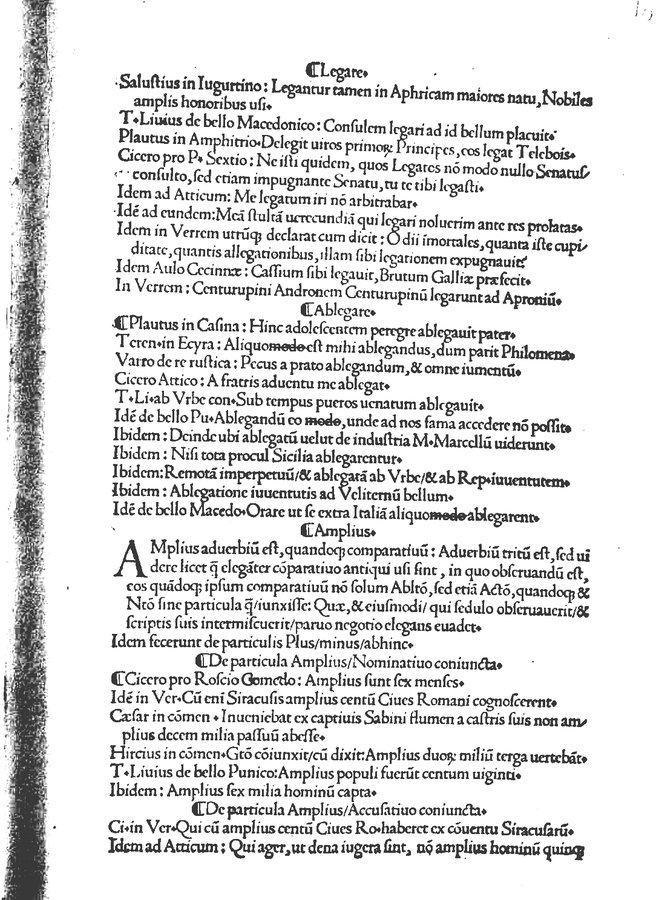 ¶Legare.
Salustius in Iugurtino: Legantur tamen in Aphricam maiores natu, Nobiles
amplis honoribus usi.
T. Liuius de bello Macedonico: Consulem legari ad id bellum placuit.
Plautus in Amphitrio. Delegit uiros primoꝝ Principes, eos legat Telebois.
Cicero pro P. Sextio: Ne isti quidem, quos Legates nō modo nullo Senatus/
consulto, sed etiam impugnante Senatu, tu te tibi legasti.
Idem ad Atticum: Me legatum iri nō arbitrabar.
Idē ad eundem: Meā stultā uerecundiā qui legari noluerim ante res prolatas.
Idem in Verrem utrūqꝫ declarat cum dicit: O dii imortales, quanta iste cupi/
ditate, quantis allegationibus, illam sibi legationem expugnauit
Idem Aulo Cecinnæ: Cassium sibi legauit, Brutum Galliæ præfecit.
In Verrem: Centurupini Andronem Centurupinū legarunt ad Aproniū.
¶Ablegare.
¶Plautus in Casina: Hinc adolescentem peregre ablegauit pater.
Teren. in Ecyra: Aliquomodo est mihi ablegandus, dum parit Philomena.
Varro de re rustica: Pecus a prato ablegandum, & omne iumentū.
Cicero Attico: A fratris aduentu me ablegat.
T. Li. ab Vrbe con. Sub tempus pueros uenatum ablegauit.
Idē de bello Pu. Ablegandū eo modo, unde ad nos fama accedere nō possit.
Ibidem: Deinde ubi ablegatū uelut de industria M. Marcellū uiderunt.
Ibidem: Nisi tota procul Sicilia ablegarentur.
Ibidem: Remotā imperpetuū/& ablegatā ab Vrbe/& ab Rep. iuuentutem.
Ibidem: Ablegatione iuuentutis ad Veliternū bellum.
Idē de bello Macedo. Orare ut se extra Italiā aliquomodo ablegarent.
¶Amplius.
AMplius aduerbiū est, quandoqꝫ comparatiuū: Aduerbiū tritū est, sed ui
dere licet q̄ elegāter cōparatiuo antiqui usi sint, in quo obseruandū est,
eos quādoqꝫ ipsum comparatiuū nō solum Abltō, sed etiā Actō, quandoqꝫ &
Ntō sine particula q̄/iunxisse: Quæ, & eiusmodi/ qui sedulo obseruauerit/&
scriptis suis intermiscuerit/paruo negotio elegans euadet.
Idem fecerunt de particulis Plus/minus/abhinc.
¶De particula Amplius/Nominatiuo coniuncta.
¶Cicero pro Roscio Comedo: Amplius sunt sex menses.
Idē in Ver. Cū eni Siracusis amplius centū Ciues Romani cognoscerent.
Cæsar in cōmen. Inueniebat ex captiuis Sabini flumen a castris suis non am/
plius decem milia passuū abesse.
Hircius in cōmen. Gtō cōiunxit/cū dixit: Amplius duoꝝ miliū terga uertebāt.
T. Liuius de bello Punico: Amplius populi fuerūt centum uiginti.
Ibidem: Amplius sex milia hominū capta.
¶De particula Amplius/Accusatiuo coniuncta.
Ci. in Ver. Qui cū amplius centū Ciues Ro. haberet ex cōuentu Siracusarū.
Idem ad Atticum: Qui ager, ut dena iugera sint, nō amplius hominū quinqꝫ